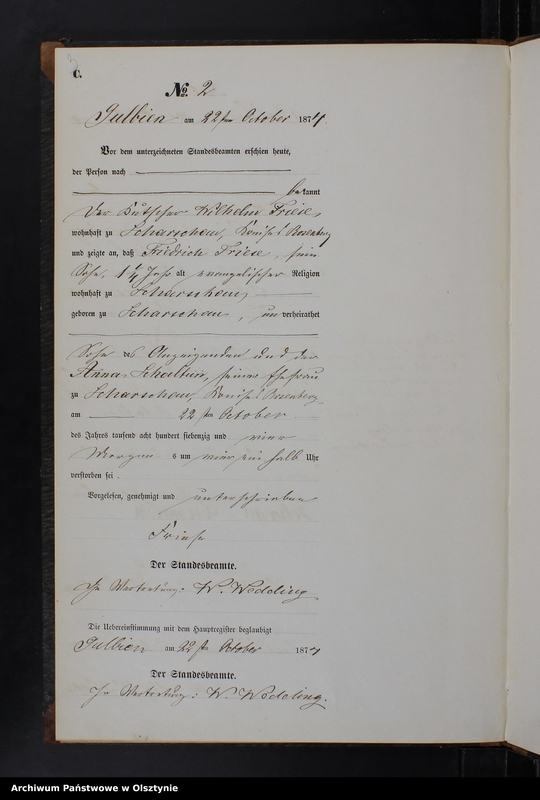 C.
No. 2
Gulbien am 22ten October 1874.
Vor dem unterzeichneten Standesbeamten erschien heute,
der Person nach
bekannt
Der Kutscher Wilhelm Friese,
wohnhaft zu Scharschau, Kreises Rosenberg
und zeigte an, daß Friedrich Friese, sein
Sohn, 1 1/4 Jahr alt evangelischer Religion
wohnhaft zu Scharschau,
geboren zu Scharschau, unverheirathet
Sohn des Anzeigenden und der
Anna, seiner Ehefrau
zu Scharschau, Kreises Rosenberg
am 22ten October
des Jahres tausend acht hundert siebenzig und vier
Morgens um ein halb Uhr
verstorben sei.
Vorgelesen, genehmigt und unterschrieben
Friese
Der Standesbeamte.
In Vertretung: W. Wedding
Die Uebereinstimmung mit dem Hauptregister beglaubigt
Gulbien am 22ten October 1874
Der Standesbeamte.
In Vertretung: W. Wedding.
Archiwum Państwowe w Olsztynie